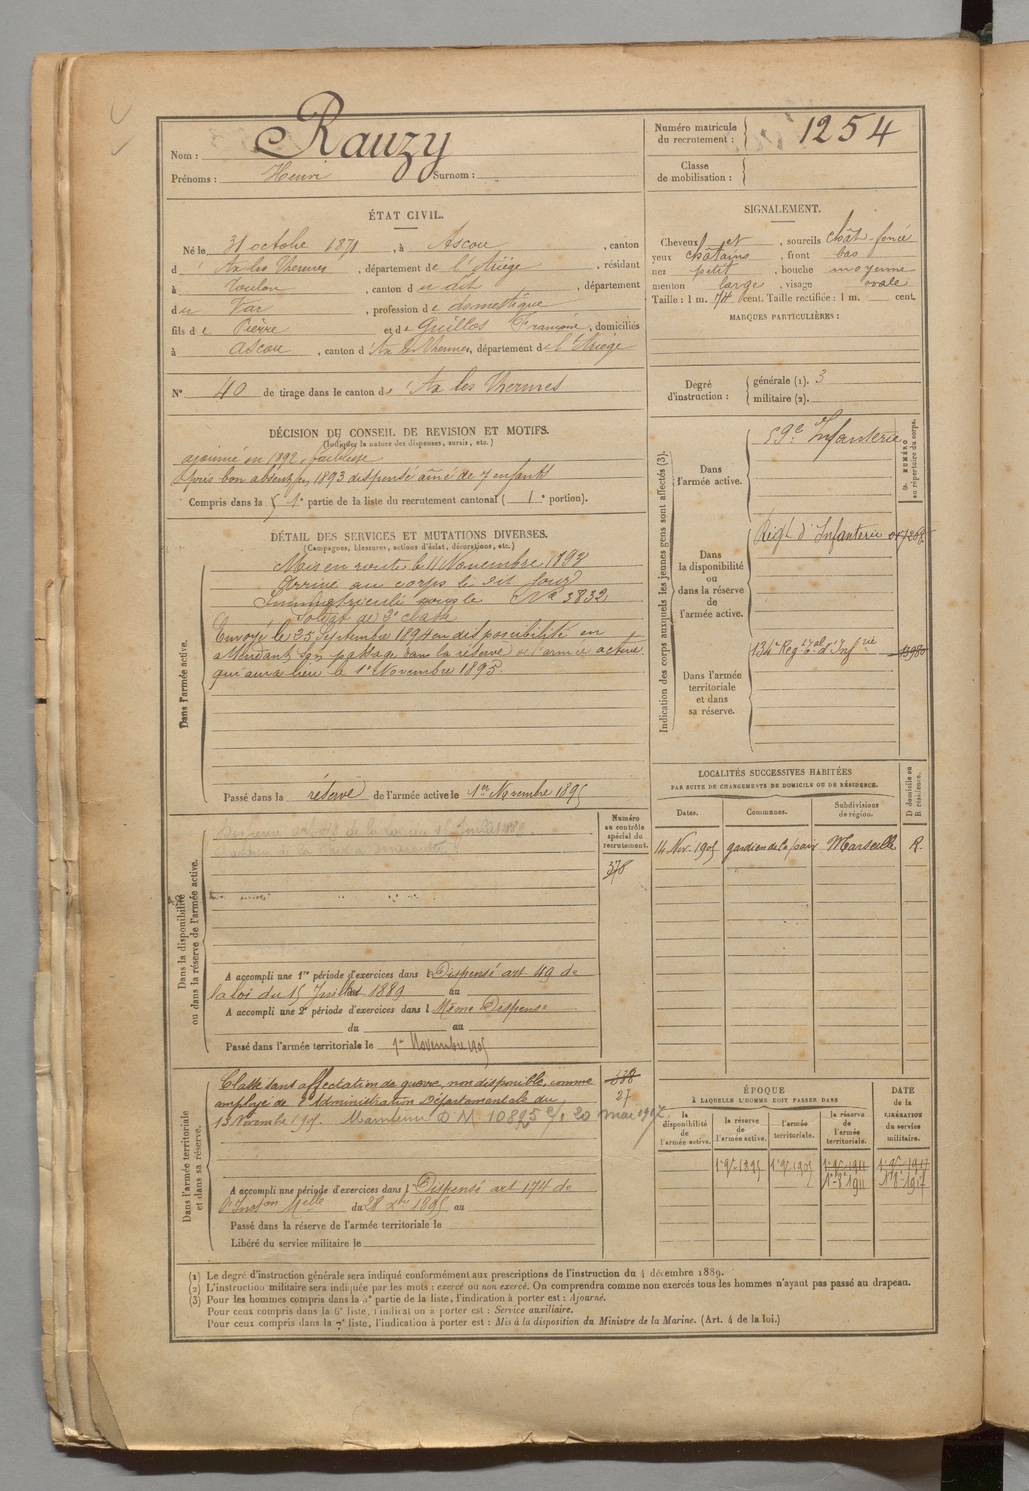 Nom : Rauzy
Prénoms : Henri Surnom :
Numéro matricule du recrutement : 1254
Classe de mobilisation :
ÉTAT CIVIL.
Né le 31 octobre 1871, à Ascou, canton
d' Ax les Thermes, département de l'Ariège, résidant
à Toulon, canton du dit, département
du Var, profession de domestique
fils de Pierre et de Guillos Françoise, domiciliés
à Ascou, canton d'Ax les Thermes, département de l'Ariège
N° 40 de tirage dans le canton d' Ax les Thermes
SIGNALEMENT.
Cheveux et, sourcils chât-foncé
yeux châtains, front bas
nez petit, bouche moyenne
menton large, visage ovale
Taille : 1 m. 74 cent. Taille rectifiée : 1 m. cent.
MARQUES PARTICULIÈRES :
Degré d'instruction : générale (1). 3
militaire (2).
DÉCISION DU CONSEIL DE REVISION ET MOTIFS.
(Indiquer la nature des dispenses, sursis, etc.)
ajourné en 1892, faiblesse
Pris bon absent en 1893 dispensé aîné de 7 enfants
Compris dans la 1e partie de la liste du recrutement cantonal ( 1e portion).
DÉTAIL DES SERVICES ET MUTATIONS DIVERSES.
(Campagnes, blessures, actions d'éclat, décorations, etc.)
Dans l'armée active.
Mis en route le 11 Novembre 1893
Arrivé au corps le dit jour
Immatriculé sous le No 3832
Soldat de 2e classe
Envoyé le 25 Septembre 1894 en disponibilité en
attendant son passage dans la réserve de l'armée active
qui aura lieu le 1er Novembre 1895.
Passé dans la réserve de l'armée active le 1er Novembre 1895
Indication des corps auxquels les jeunes gens sont affectés (3).
NUMÉRO au répertoire du corps.
Dans l'armée active.
59e Infanterie
Dans la disponibilité ou dans la réserve de l'armée active.
Régt d'Infanterie
Dans l'armée territoriale et dans sa réserve.
134e Regt d'Infrie
LOCALITÉS SUCCESSIVES HABITÉES
PAR SUITE DE CHANGEMENTS DE DOMICILE OU DE RÉSIDENCE.
Dates. Communes. Subdivisions de région. D domicile ou R résidence.
14 Nov. 1905 gardien de la paix Marseille R.
Dans la disponibilité ou dans la réserve de l'armée active.
Numéro au contrôle spécial du recrutement.
370
A accompli une 1re période d'exercices dans l Dispensé art 49 de
la loi du 15 Juillet 1889 au
A accompli une 2e période d'exercices dans l Même Dispense
du au
Passé dans l'armée territoriale le 1er Novembre 1905
Dans l'armée territoriale et dans sa réserve.
Classé sans affectation de guerre, non disponible, comme
employé de l'Administration Départementale du
13 Novembre 1905. Maintenu D M. 10895 20 mai 1917.
338
27
A accompli une période d'exercices dans l Dispensé art 174 de
l'Inson Melle du 28 Xbre 1895 au
Passé dans la réserve de l'armée territoriale le
Libéré du service militaire le
ÉPOQUE
À LAQUELLE L'HOMME DOIT PASSER DANS
la disponibilité de l'armée active. la réserve de l'armée active. l'armée territoriale. la réserve de l'armée territoriale.
DATE de la LIBÉRATION du service militaire.
1er 9bre 1895 1er 9bre 1905 1er 9bre 1911 1er 9bre 1917
1er 8bre 1911 1er 8bre 1917
(1) Le degré d'instruction générale sera indiqué conformément aux prescriptions de l'instruction du 4 décembre 1889.
(2) L'instruction militaire sera indiquée par les mots : exercé ou non exercé. On comprendra comme non exercés tous les hommes n'ayant pas passé au drapeau.
(3) Pour les hommes compris dans la 5e partie de la liste, l'indication à porter est : Ajourné.
Pour ceux compris dans la 6e liste, l'indication à porter est : Service auxiliaire.
Pour ceux compris dans la 7e liste, l'indication à porter est : Mis à la disposition du Ministre de la Marine. (Art. 4 de la loi.)